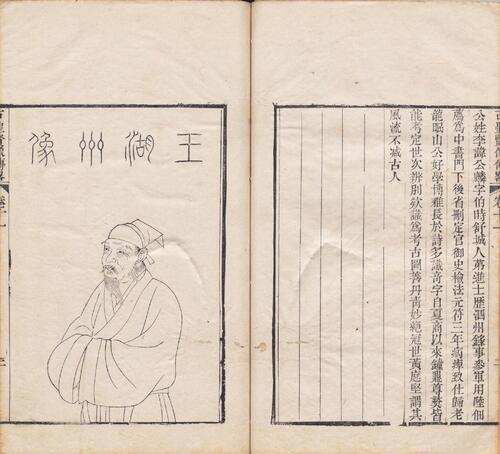 公姓李諱公麟字伯時舒城人第進士歷泗州錄事參軍用陸佃
薦爲中書門下後省刪定官御史檢法元符三年病痺致仕歸老
龍眠山公好學博雅長於詩多識奇字自夏商以來鐘鼎尊彝皆
能考定世次辨別欵識爲考古圖善丹靑妙絕冠世黃庭堅謂其
風流不减古人
王湖州像